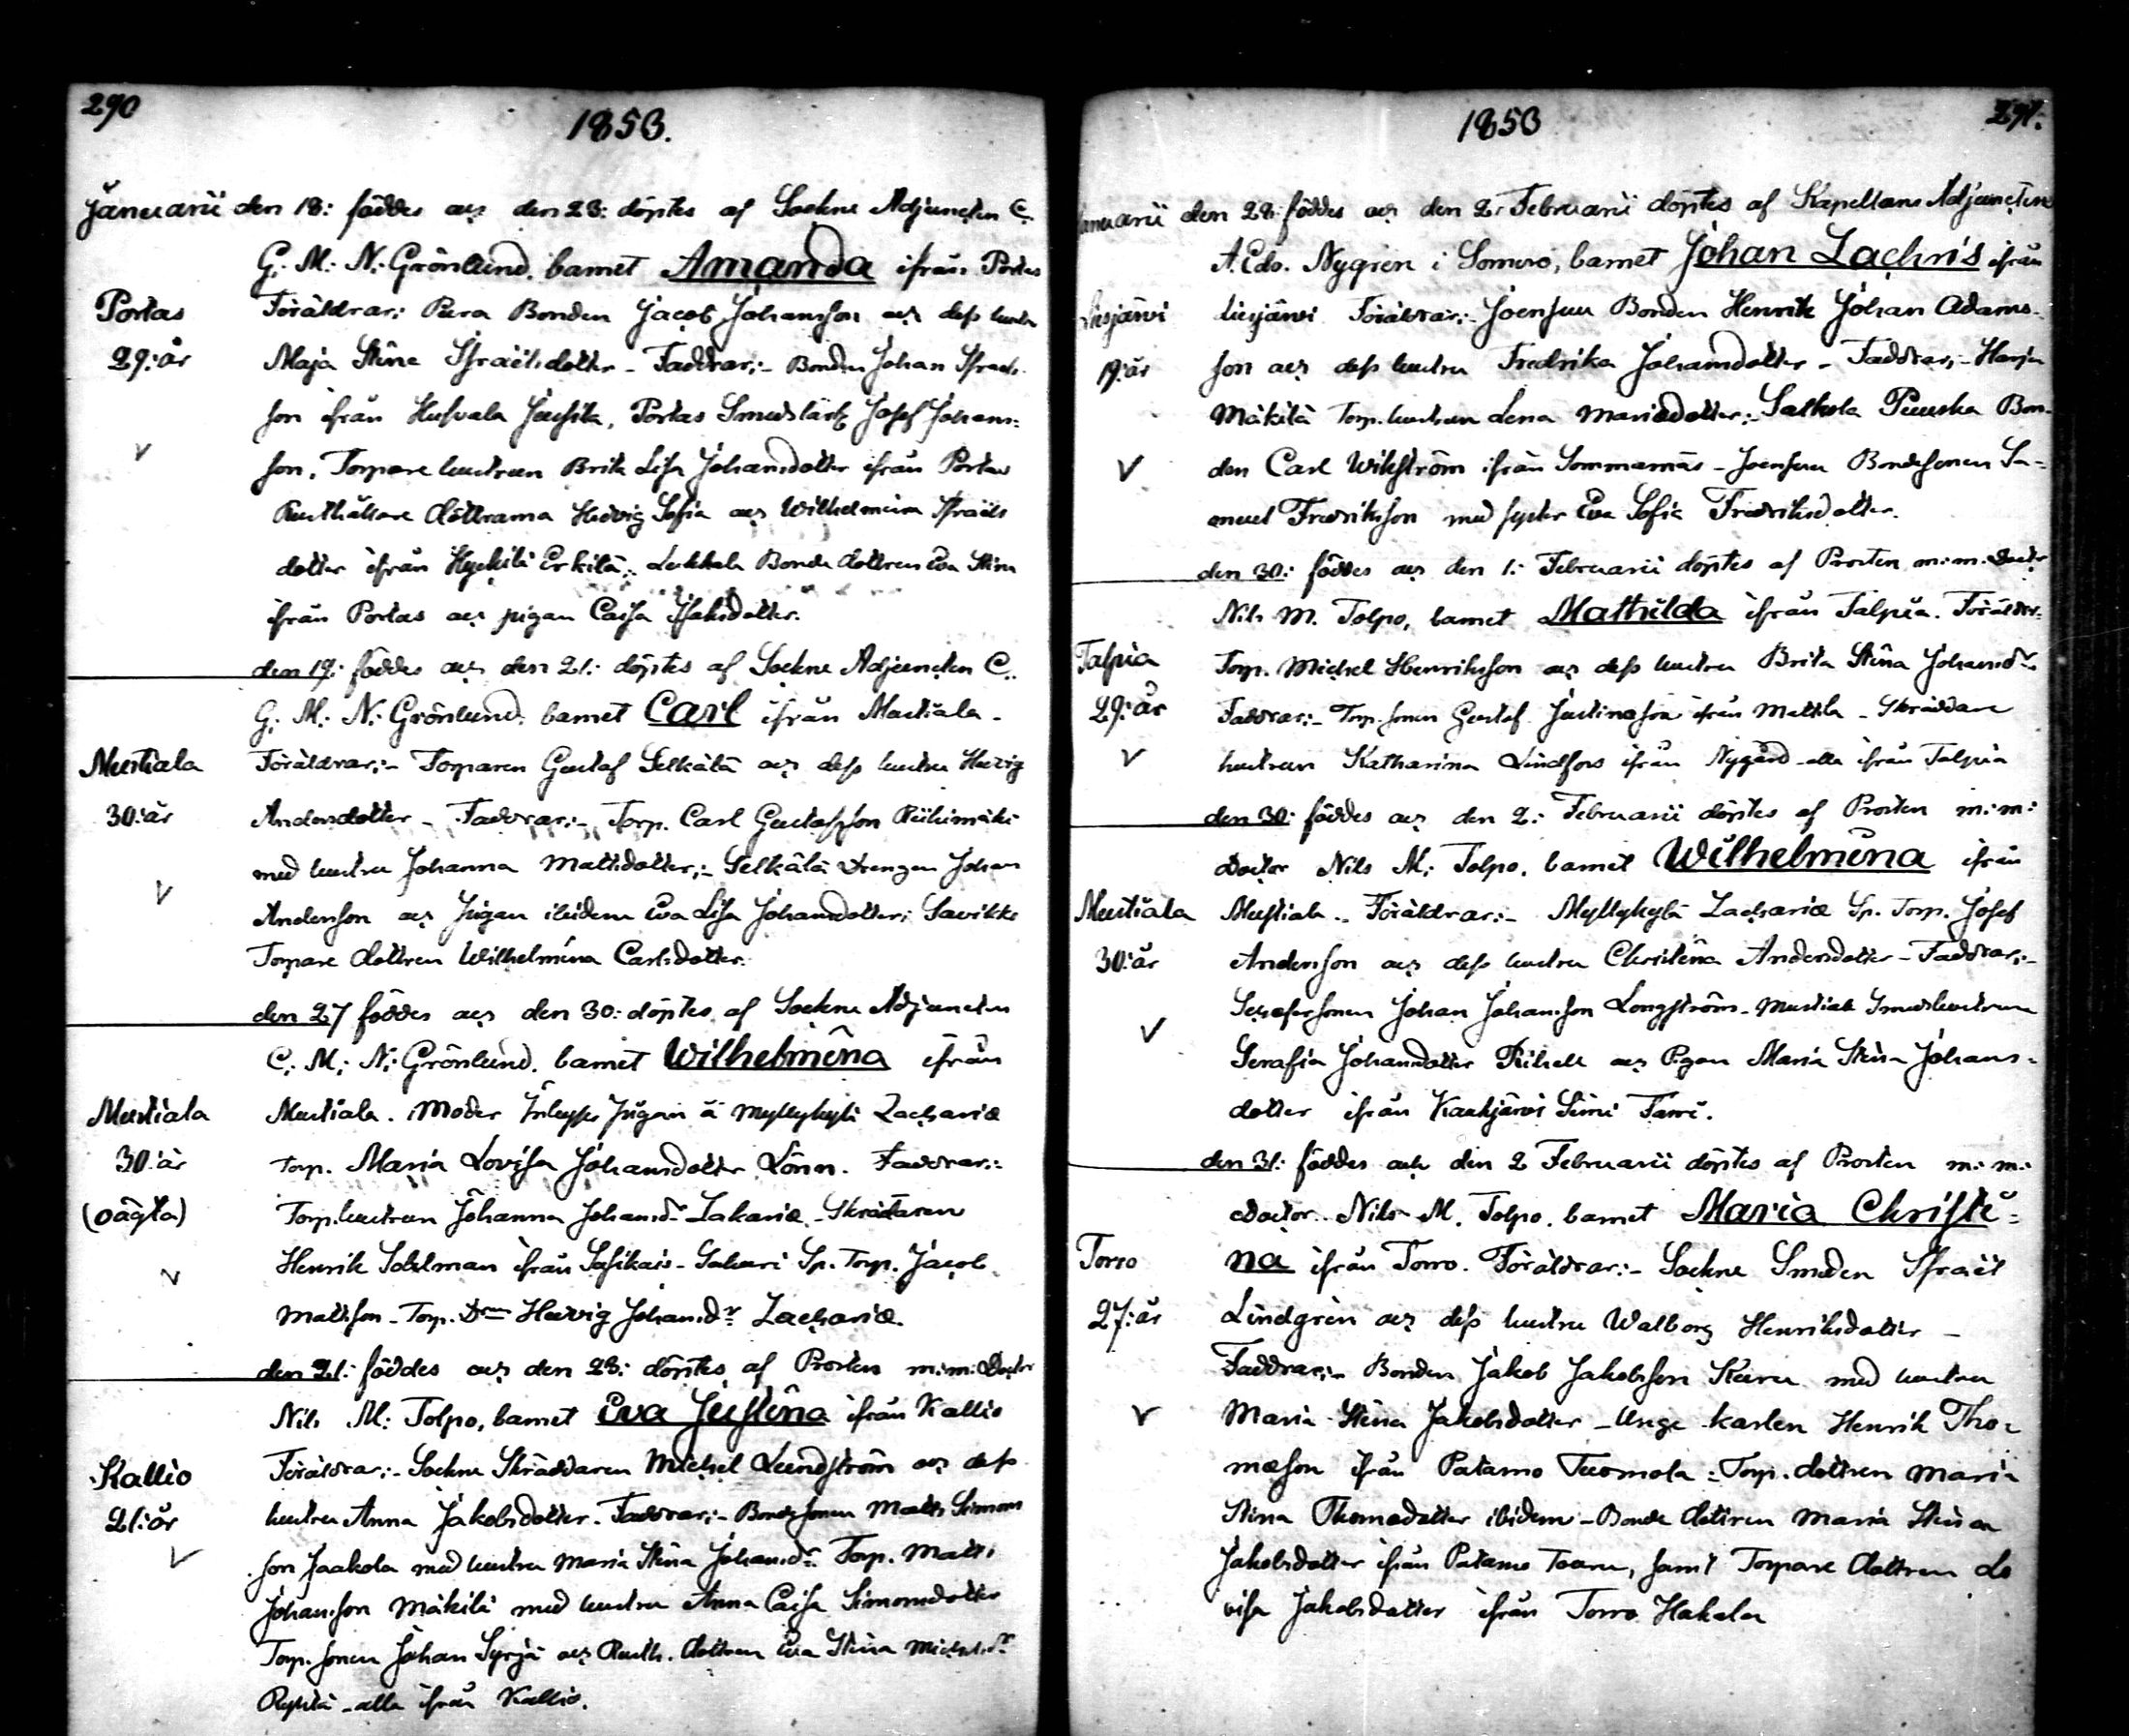 290
1853.
Januarii den 18: föddes och den 23: döptes af Sockne Adjuncten C.
G. M: N: Grönlund, barnet Amanda ifrån Portas
Portas
Föräldrar: Pura Bonden Jacob Johansson och dess hustru
29: år
Maja Stina Israelsdotter - Faddrar:- Bonden Johan Israels
son ifrån Jussila, Portas Josef Johans:
son, Torpare hustrun Brita Lisa Johansdotter ifrån Portas
Rusthållare döttrarna Hedvig Sofia och Wilhelmina Israels
dotter ifrån Erkilä: Bonde dottren Eva Stina
ifrån Portas och pigan Caisa Isaksdotter.
den 19: föddes och den 21: döptes af Sockne Adjuncten C.
G. M: N: Grönlund, barnet Carl ifrån Mustiala -
Mustiala
Föräldrar:- Torparen Gustaf Selkälä och dess hustru Hedvig
30: år
Andersdotter - Faddrar:- Torp. Carl Gustafsson Riihimäki
med hustru Johanna Mattsdotter:- Selkälä Drengen Johan
Andersson och Pigan ibidem Eva Lisa Johansdotter; Savikko
Torpare dottren Wilhelmina Carlsdotter.
den 27 föddes och den 30: döptes af Sockne Adjuncten
C. M; N: Grönlund, barnet Wilhelmina ifrån
Mustiala
Mustiala. Moder Inhyses Pigan å Myllykylä Zachariæ
30: år
Torp. Maria Lovisa Johansdotter Lönn. Faddrar:-
(oägta)
Torp. hustrun Johanna Johansdr Zakariæ - Skräddaren
Henrik ifrån - Sp. Torp. Jacob
Mattsson - Torp. Hedvig Johansdr Zachariæ.
den 21: föddes och den 23: döptes af Prosten m: m: Doctor
Nils M: Tolpo, barnet Eva Justina ifrån Kallio
Kallio
Föräldrar:- Sockne Skräddaren Michel Lundström och dess
21: år
hustru Anna Jakobsdotter. Faddrar:- Bondesonen Matts Simons
son Jaakola med hustru Maria Stina Johansdr Torp. Matts
Johansson Mäkilä med hustru Anna Caisa Simonsdotter
Torp. sonen Johan Syrjä och Rusth. dottren Eva Stina Michelsdr
alla ifrån Kallio.
1853
291:
Januarii den 28: föddes och den 2: Februarii döptes af Kapellans Adjuncten
A. Edv. Nygren i Somero, barnet Johan Zachris ifrån
Liesjärvi
Liesjärvi Föräldrar:- Joensuu Bonden Henrik Johan Adams-
19: år
son och dess hustru Fredrika Johansdotter - Faddrar:- Harju
Mäkilä Torp. hustrun Lena Mariædotter:- Salkola Bon-
den Carl Wikström ifrån Sommarnäs - Joensuu Bondesonen Sa-
muel Fredriksson med syster Eva Sofia Fredriksdotter.
den 30: föddes och den 1: Februarii döptes af Prosten m: m: Doctor
Nils M. Tolpo, barnet Mathilda ifrån Talpia. Föräldr:
Talpia
Torp. Michel Henriksson och dess hustru Brita Stina Johansdr.
29: år
Faddrar:- Torp. sonen Gustaf Justinason ifrån Mattila - Skräddare
hustrun Katharina Lindfors ifrån Nygård - alla ifrån Talpia
den 30: föddes och den 2: Februarii döptes af Prosten m: m:
Doctor Nils M: Tolpo, barnet Wilhelmina ifrån
Mustiala
Mustiala. Föräldrar:- Myllykylä Zachariæ Sp. Torp. Josef
30: år
Andersson och dess hustru Christina Andersdotter - Faddrar:-
Johan Johansson Longström - Mustiala Smedshustrun
Serafia Johansdotter och Pigan Maria Stina Johans-
dotter ifrån Kaukjärvi
den 31: föddes och den 2 Februarii döptes af Prosten m: m:
Doctor Nils M. Tolpo, barnet Maria Christi=
Torro
na ifrån Torro. Föräldrar:- Sockne Smeden Israel
27: år
Lindgrén och dess hustru Walborg Henriksdotter -
Faddrar:- Bonden Jakob Jakobsson med hustru
Maria Stina Jakobsdotter - Unge karlen Henrik Tho=
mæson ifrån Patamo Tuomola - Torp. dottren Maria
Stina Thomædotter ibidem - Bonde dottren Maria Stina
Jakobsdotter ifrån Patamo, samt Torpare dottren Lo
visa Jakobsdotter ifrån Torro Hakala